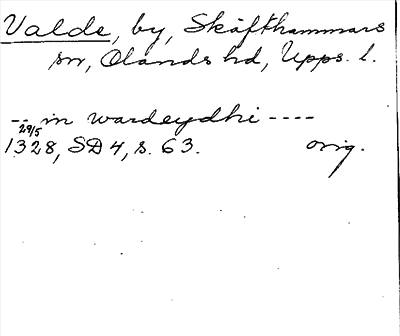 Valde, by, Skäfthammars
sn, Olands hd, Upps. l.
-- in wardeydhi ----
29/5
1328, SD 4, s. 63. orig.